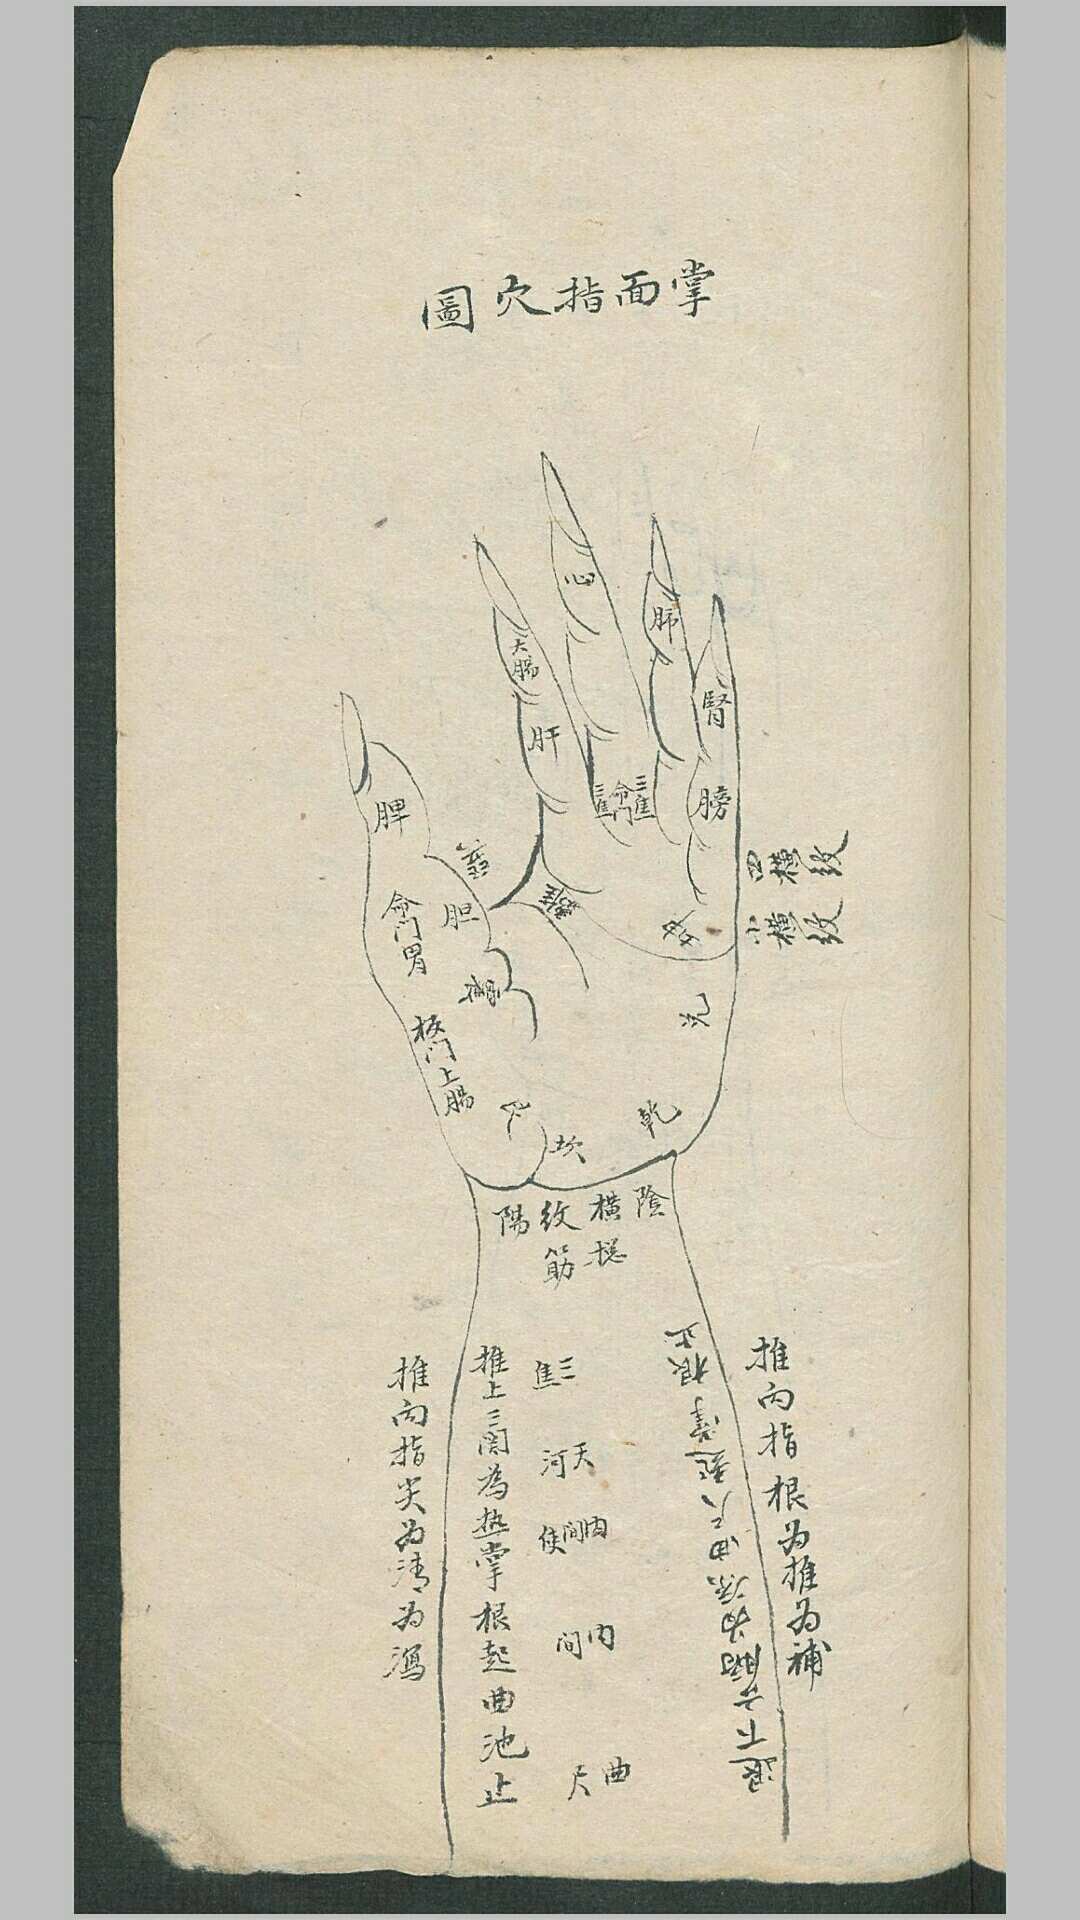 掌面指穴圖
心
肺
大腸
肝
腎
脾
三焦
命門
三焦
膀
四橫紋
小橫紋
胆
命門
胃
離
震
板門
上腸
兌
乾
坎
艮
陰
橫
紋
陽
總
筋
推向指根為推為補
退下六腑為涼曲尺起掌根止
三焦
天河
內間使
內間
曲尺
推上三關為熱掌根起曲池止
推向指尖为清为瀉